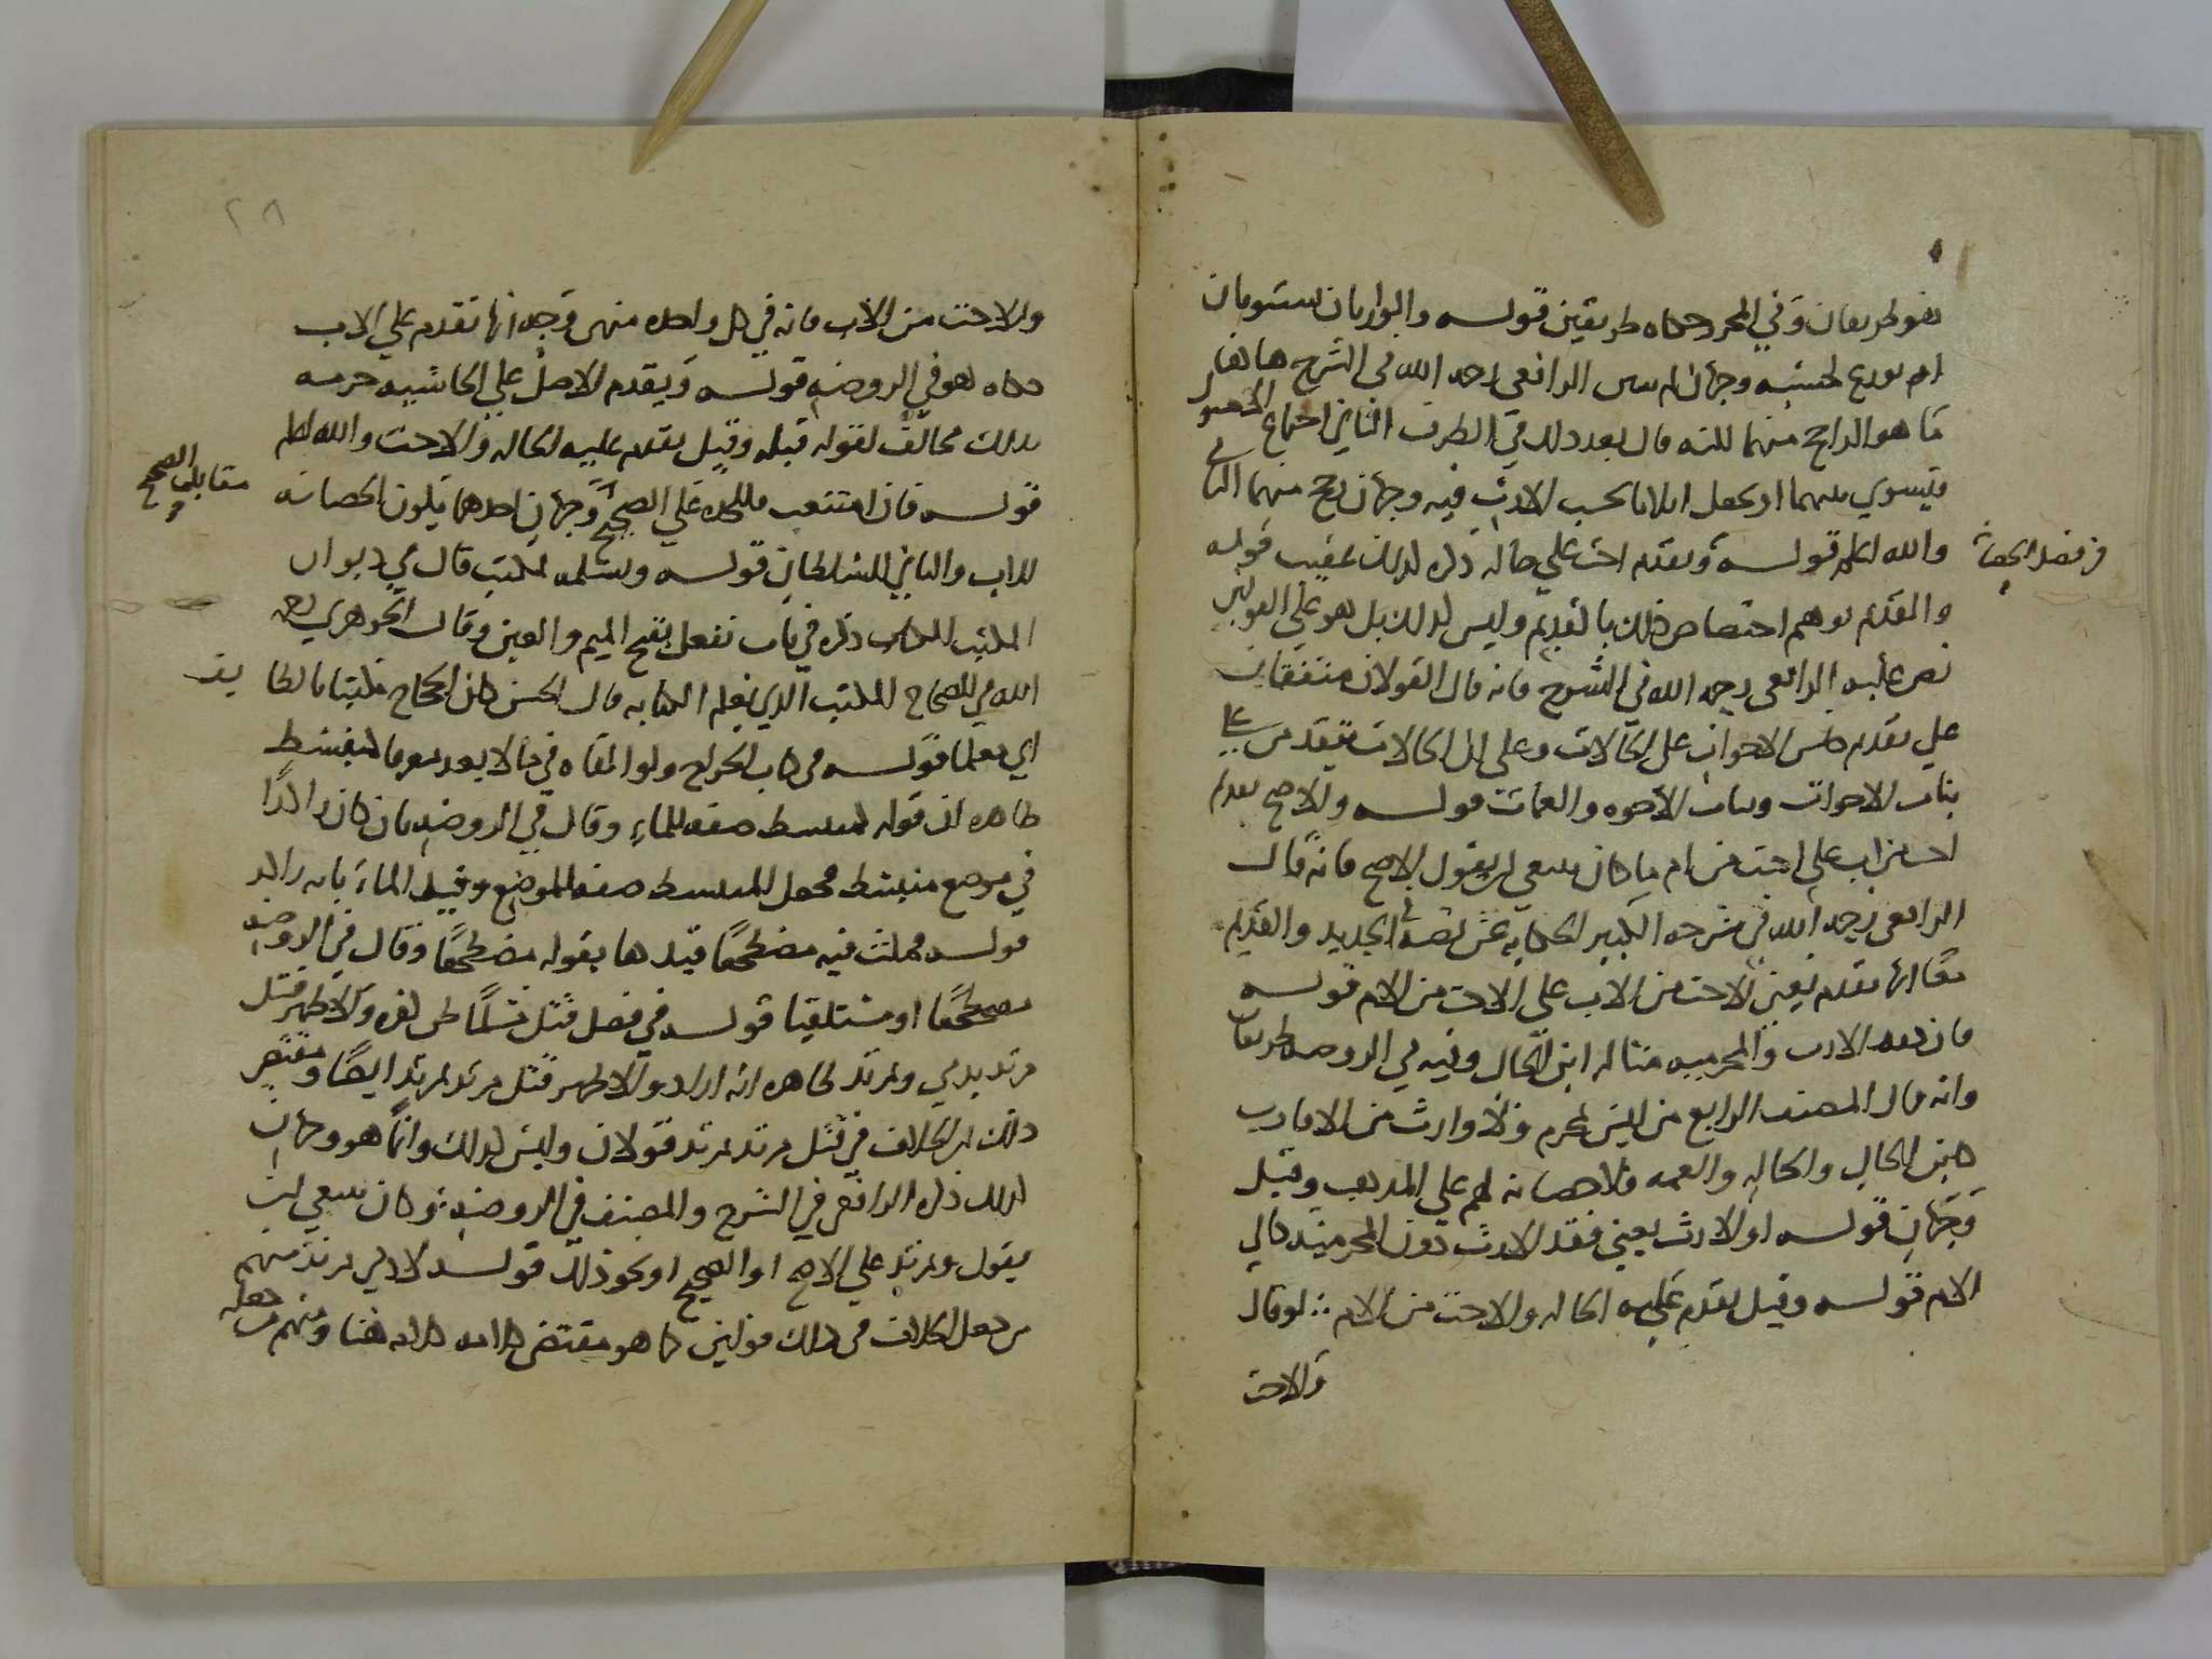 طريقان وفي المحرر حكاه طريقين قوله والوارثان يستويان
ام يوزع بحسبه وجهان لم يبين الرافعي رحمه الله في الشرح هاهنا
ما هو الراجح منهما لكنه قال بعد ذلك في الطرف الثاني اجتماع الاصول
فيسوي بينهما او يجعل اثلاثا بحسب الارث فيه وجهان رجح منهما الثاني
والله اعلم قوله وتقدم اخت على خاله ذكره لذلك عقيب قوله
والقديم يوهم اختصاص ذلك بالقديم وليس كذلك بل هو على القولين
نص عليه الرافعي رحمه الله في الشرح فانه قال القولان متفقان
على تقديم جنس الاخوات على الخالات وعلى ان الخالات يتقدمن على
بنات الاخوات وبنات الاخوه والعمات قوله والاصح تقديم
اخت من اب على اخت من ام ما كان ينبغي ان يقول الاصح فانه قال
الرافعي رحمه الله في شرحه الكبير لحكايه عن نصه في الجديد والقديم
معا انها تقدم يعني الاخت من الاب على الاخت من الام قوله
فان فقد الارث والمحرميه مثاله ابن الخال وفيه في الروضه طريقان
وانه قال المصنف الرابع من ليس بمحرم ولا وارث من الاقارب
كابن الخال والخاله والعمه فلا حضانه لهم على المذهب وقيل
وجهان قوله او الارث يعني فقد الارث دون المحرميه كابي
الام قوله وقيل تقدم عليه الخاله والاخت من الام لو قال
والاخت
في فصل الحضانة
والاخت من الاب فانه في كل واحده منهن وجه انها تقدم على الاب
حكاه هو في الروضه قوله ويقدم الاصل على الحاشيه جزمه
بذلك مخالف لقوله قبله وقيل تقدم عليه الخاله والاخت والله اعلم
قوله فان امتنعت فللجدة على الصحيح وجهان احدهما تكون الحضانه
للاب والثاني للسلطان قوله ويسلمه لمكتب قال في ديوان
المكتب الكتاب ذكره في باب مفعل بفتح الميم والعين وقال الجوهري رحمه
الله في الصحاح المكتب الذي يعلم الكتابه قال الحسن كان الحجاج مكتبا بالطايف
اي معلما قوله في كتاب الجراح ولو القاه في ما لا يعد مغرقا كمنبسط
ظاهره ان قوله كمنبسط صفه للماء وقال في الروضه بان كان راكدا
في موضع منبسط فجعل المنبسط صفه للموضع وقيد الماء بانه راكد
قوله فمكث فيه مضطجعا قيدها بقوله مضطجعا وقال في الروضه
مضطجعا او مستلقيا قوله في فصل قتل مسلما ظن كفره والاظهر قتل
مرتد بذمي وبمرتد ظاهره انه اراد والاظهر قتل مرتد بمرتد ايضا ومقتضى
ذلك ان الخلاف في قتل مرتد بمرتد قولان وليس كذلك وانما هو وجهان
كذلك ذكره الرافعي في الشرح والمصنف في الروضه وكان ينبغي ان
يقول وبمرتد على الاصح او الصحيح او نحو ذلك قوله لا ذمي بمرتد منهم
من جعل الخلاف في ذلك قولين كما هو مقتضى كلامه هنا ومنهم من جعله
مقابل الصحيح
٢٨